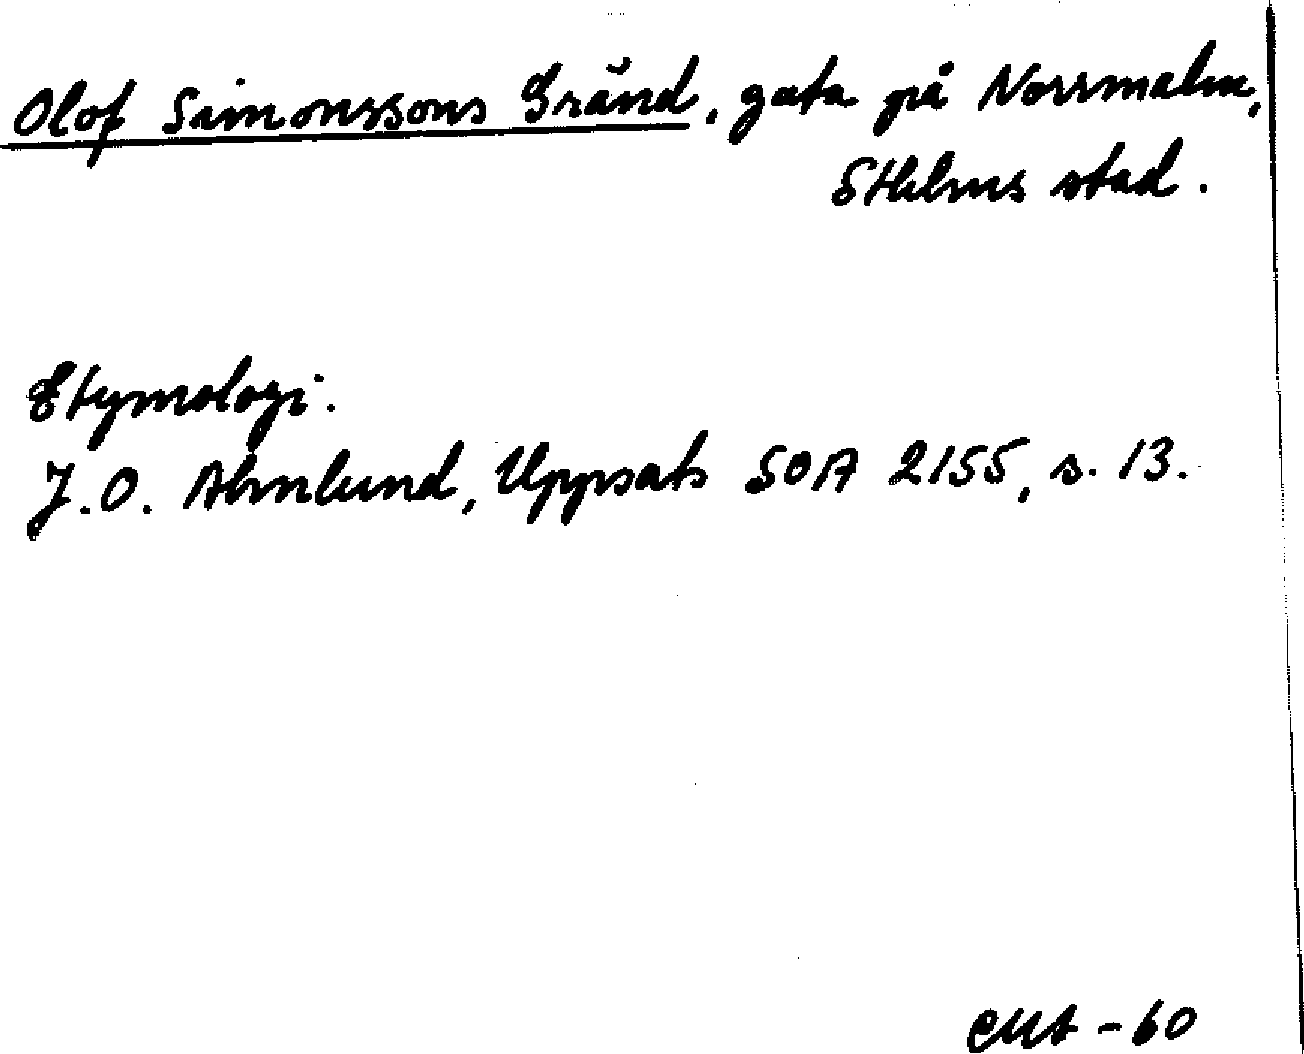 Olof Simonssons Gränd, gata på Norrmalm,
Sthlms stad.
Etymologi.
J.O. Ahnlund, Uppsats SOA 2155, s. 13.
-60